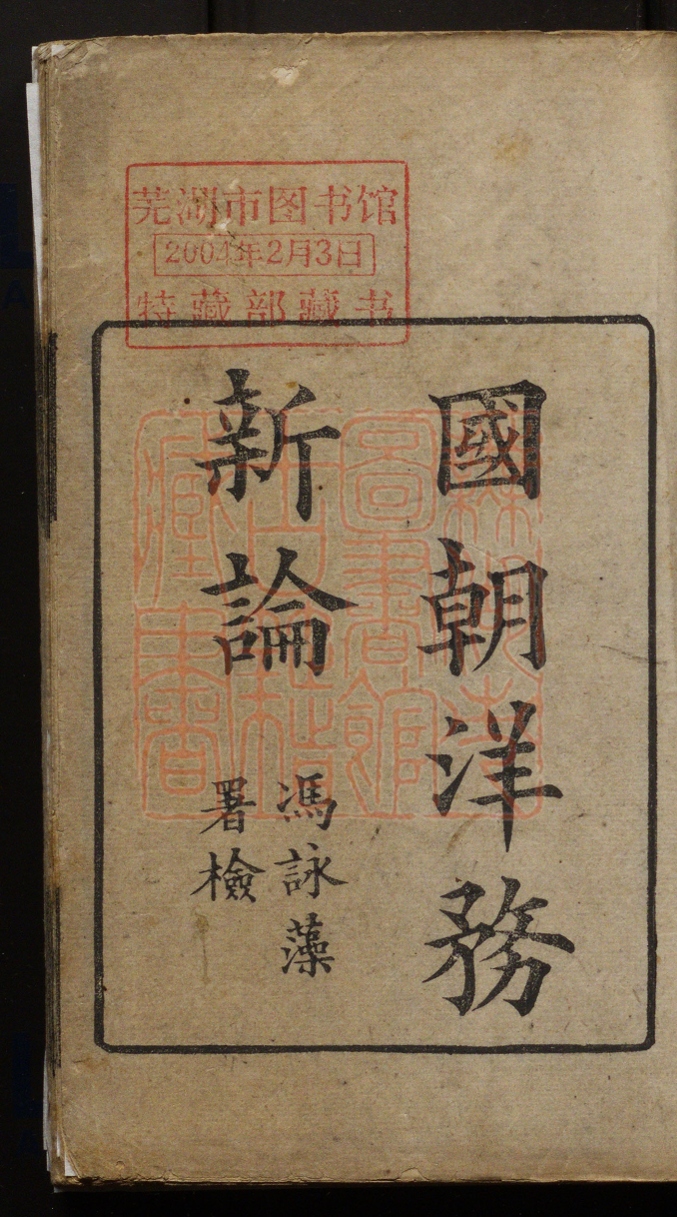 芜湖市图书馆
2004年2月3日
特藏部藏书
國朝洋務
新論
馮詠藻
署檢
圖書館
藏書